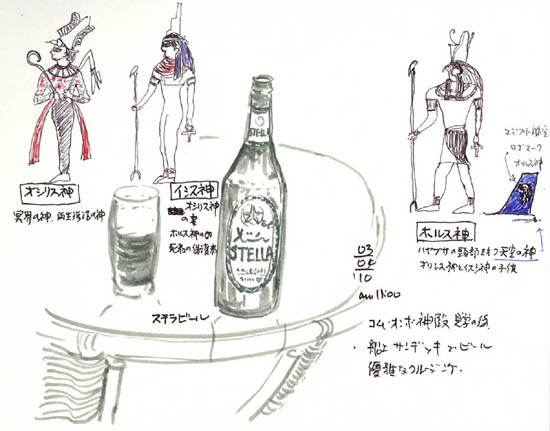 オシリス神
冥界の神、再生復活の神
イシス神
オシリス神
の妻
ホルス神の母
死者の保護者
STELLA
STELLA
ステラビール
03
04
'10
am 11:00
ホルス神
ハヤブサの頭部をもつ天空の神
オシリス神とイシス神の子供
エジプト航空
ロゴマーク
ホルス神
コム・オンボ神殿 見学の後
・船上サンデッキでビール
優雅なクルージング。